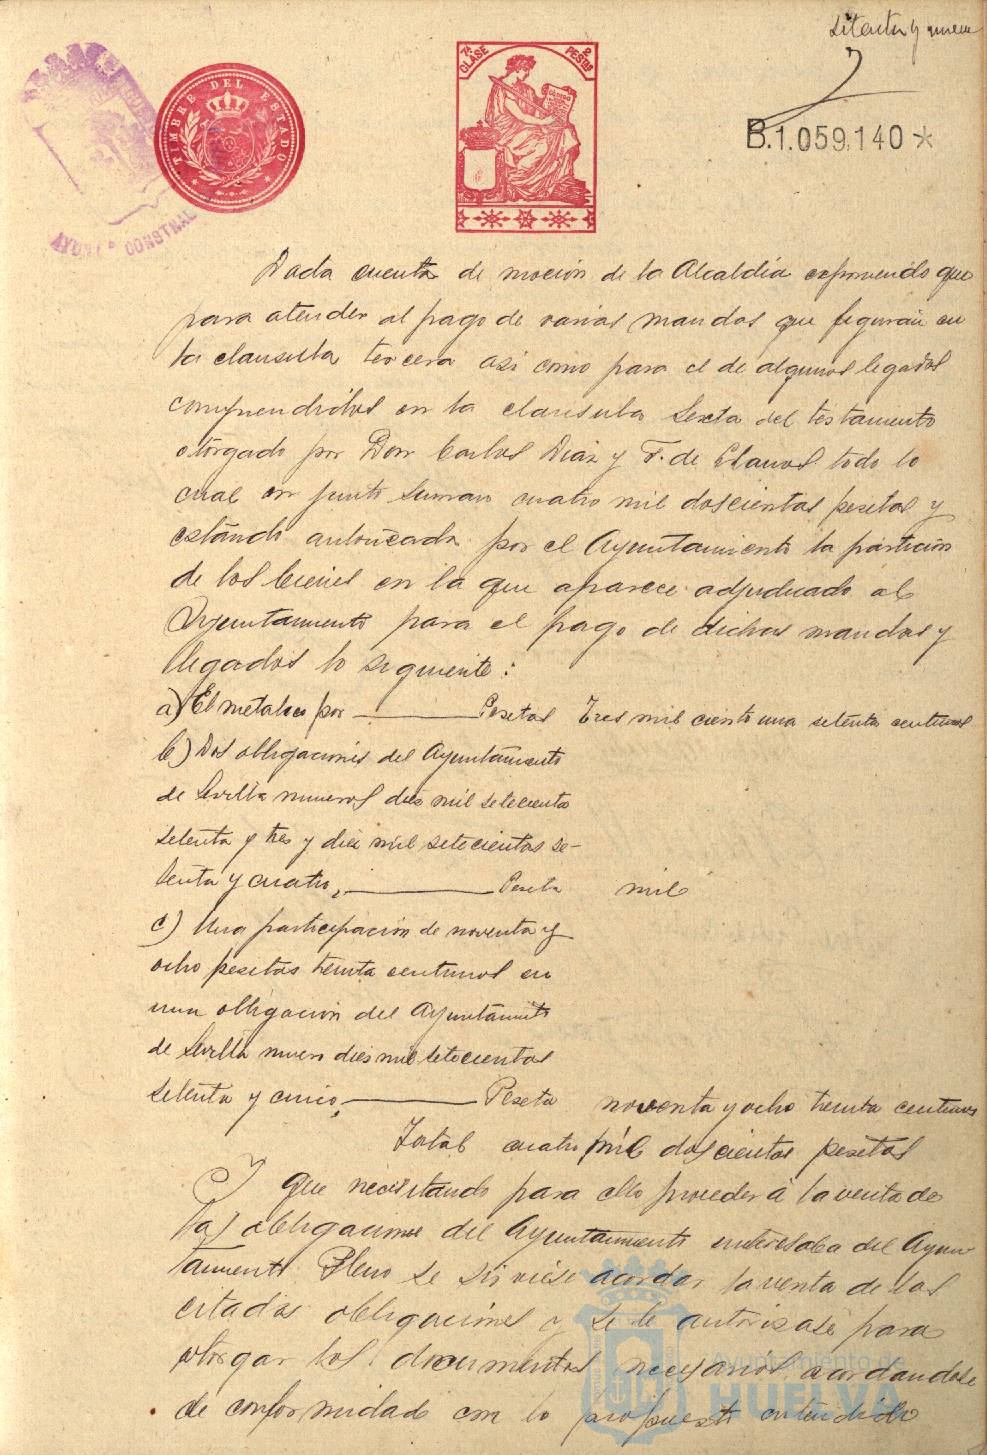 Setenta y nueve
7ª CLASE
2 PESETAS
TIMBRE DEL ESTADO
AYUNTº CONSTNAL
B.1.059.140*
Dada cuenta de moción de la Alcaldia exponiendo que
para atender al pago de varias mandas que figuran en
la clausula tercera asi como para el de algunos legados
comprendidos en la clausula Sexta del testamento
otorgado por Don Carlos Diaz y F. de Llanos todo lo
cual en junto suman cuatro mil doscientas pesetas y
estando autorizada por el Ayuntamiento la particion
de los bienes en la que aparece adjudicado al
Ayuntamiento para el pago de dichas mandas y
legados lo siguiente:
a) El metalico por Pesetas Tres mil ciento una setenta centimos
b) Dos obligaciones del Ayuntamiento
de Sevilla numeros dies mil setecientos
setenta y tres y diez mil setecientos se-
tenta y cuatro, Peseta mil
c) Una participación de noventa y
ocho pesetas treinta centimos en
una obligación del Ayuntamiento
de Sevilla numero dies mil setecientos
setenta y cinco, Peseta noventa y ocho treinta centimos
Total cuatro mil doscientas pesetas
Y que necesitando para ello proceder á la venta de
las obligaciones del Ayuntamiento interesaba del Ayun
tamiento Pleno se sirviese acordar la venta de las
citadas obligaciones y se le autorizase para
otorgar los documentos necesarios, acordandose
de conformidad con lo propuesto entendido
Ayuntamiento de
HUELVA